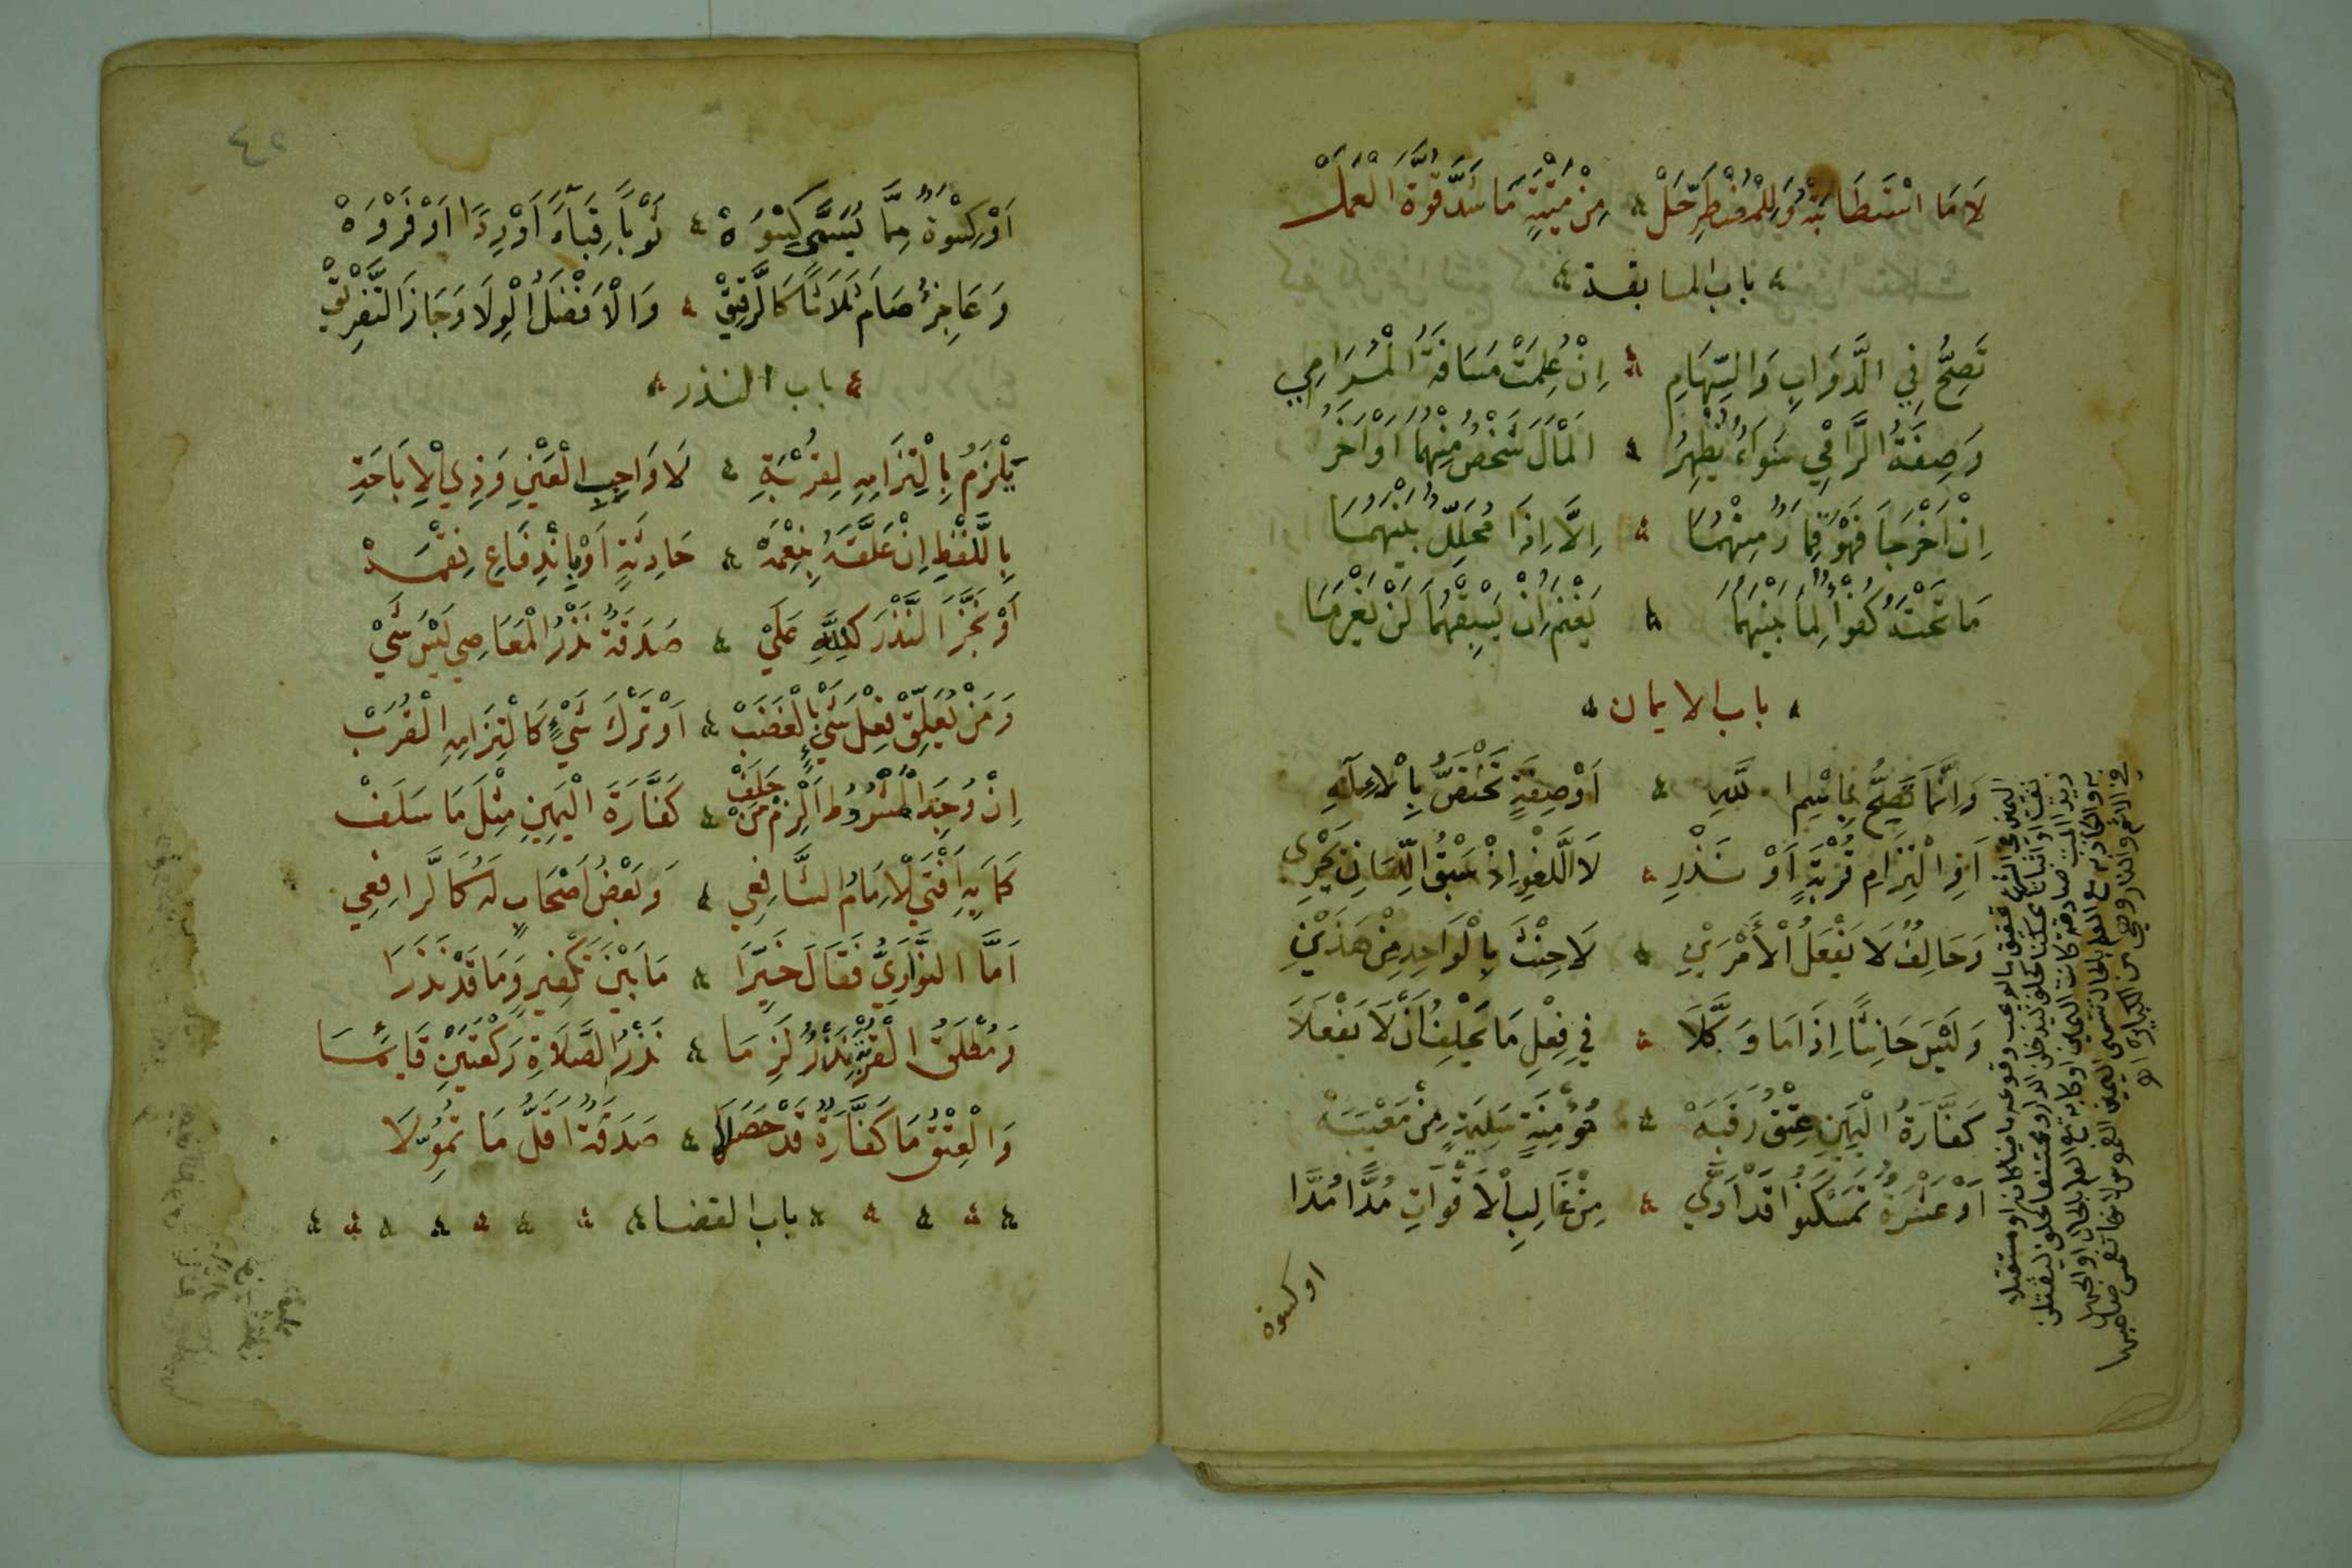 لَا مَا اسْتَطَابَتْهُ وَلِلْمُضْطَرِّ حَلّْ ؞ مِنْ مَيْتَةٍ مَا سَدَّ قُوَّةَ الْعَمَلْ
؞ باب المسابقة ؞
تَصِحُّ فِي الدَّوَابِ وَالسِّهَامِ ؞ اِنْ عُلِمَتْ مَسَافَةُ الْمَرَامِي
وَصِفَةُ الرَّامِي سَوَاءٌ يُظْهِرُ ؞ الْمَالَ شَخْصٌ مِنْهُمَا اَوْ آخَرُ
اِنْ اَخْرَجَا فَهْوَ قِمَارٌ مِنْهُمَا ؞ اِلَّا اِذَا مُحَلِّلٌ بَيْنَهُمَا
مَا تَحْتَهُ كُفْؤٌ لِمَا بَيْنَهُمَا ؞ يَغْنَمُ اِنْ يَسْبِقْهُمَا لَنْ يَغْرَمَا
؞ باب الايمان ؞
وَاِنَّمَا تَصِحُّ بِاسْمِ اللَّهِ ؞ اَوْ صِفَةٍ تَخْتَصُّ بِالْاِلَهِ
اَوِ الْتِزَامِ قُرْبَةٍ اَوْ نَذْرِ ؞ لَا اللَّغْوِ اِذْ سَبْقُ اللِّسَانِ يَجْرِي
وَحَالِفٌ لَا يَفْعَلُ الْاَمْرَيْنِ ؞ لَا حِنْثَ بِالْوَاحِدِ مِنْ هَذَيْنِ
وَلَيْسَ حَانِثًا اِذَا مَا وَكَّلَا ؞ فِي فِعْلِ مَا يَحْلِفُ اَنْ لَا يَفْعَلَا
كَفَّارَةُ الْيَمِينِ عِتْقُ رَقَبَهْ ؞ مُؤْمِنَةٍ سَلِيمَةٍ مِنْ مَعْيَبَهْ
اَوْ عَشْرَةٌ تَمَسْكَنُوا قَدْ اَدَّى ؞ مِنْ غَالِبِ الْاَقْوَاتِ مُدًّا مُدَّا
او كسوة
اليمين في الشرع تحقيق ما لم يجب وقوعه ماضيا كان او مستقبلا
به والكاذبة مع العلم بالحال تسمى اليمين الغموس لانها تغمس صاحبها
في الاثم والنار وهي من الكبائر اه
اَوْ كِسْوَةٌ مِمَّا يُسَمَّى كِسْوَهْ ؞ ثَوْبًا قِبَآءً اَوْ رِدًا اَوْ فَرْوَهْ
وَعَاجِزٌ صَامَ ثَلَاثًا كَالرَّقِيقْ ؞ وَالْاَفْضَلُ الْوِلَا وَجَازَ التَّفْرِيقْ
؞ باب النذر ؞
يَلْزَمُ بِالْتِزَامِهِ لِقُرْبَةِ ؞ لَا وَاجِبِ الْعَيْنِ وَذِي الْاِبَاحَةِ
بِاللَّفْظِ اِنْ عَلَّقَهُ بِنِعْمَهْ ؞ حَادِثَةٍ اَوْ بِانْدِفَاعِ نِقْمَهْ
اَوْ نَجَّزَ النَّذْرَ كَلِلَّهِ عَلَيْ ؞ صَدَقَةٌ نَذْرُ الْمَعَاصِي لَيْسَ شَيْ
وَمَنْ يُعَلِّقْ فِعْلَ شَيْءٍ بِالْغَضَبْ ؞ اَوْ تَرْكَ شَيْءٍ كَالْتِزَامِهِ الْقُرَبْ
اِنْ وُجِدَ الْمَشْرُوطُ اَلْزِمْ مَنْ حَلَفْ ؞ كَفَّارَةَ الْيَمِينِ مِثْلَ مَا سَلَفْ
كَمَا بِهِ اَفْتَى الْاِمَامُ الشَّافِعِي ؞ وَبَعْضُ اَصْحَابٍ لَهُ كَالرَّافِعِي
اَمَّا النَّوَاوِيُّ فَقَالَ خَيِّرَا ؞ مَا بَيْنَ تَكْفِيرٍ وَمَا قَدْ نَذَرَا
وَمُطْلَقُ الْقُرْبَةِ نَذْرٌ لَزِمَا ؞ نَذْرُ الصَّلَاةِ رَكْعَتَيْنِ قَائِمَا
وَالْعِتْقُ مَا كَفَّارَةٌ قَدْ حَصَلَا ؞ صَدَقَةٌ اَقَلُّ مَا تُمُوِّلَا
؞ باب القضاء ؞